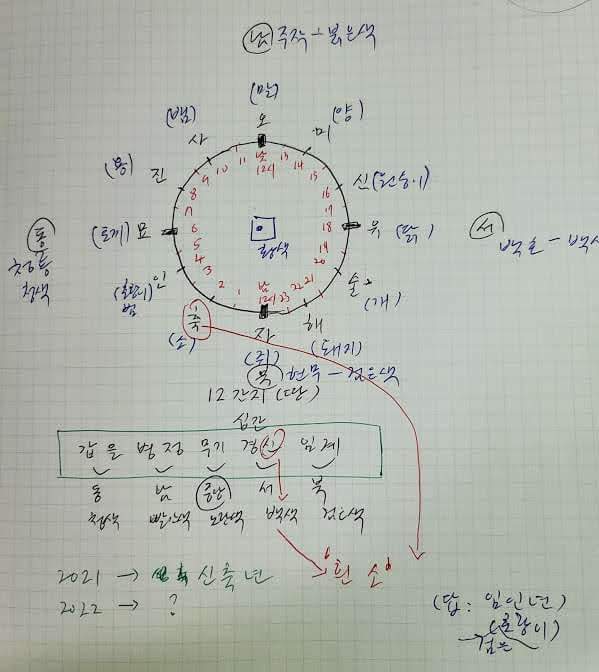 남 주작 - 붉은색
(말)
오
(뱀)
사
미 (양)
(용)
진
신 (원숭이)
11 낮 12시 13
10 14
9 15
8 16
7 17
6 18
5 19
4 20
3 21
2 22
1 밤 12시 23
황색
동
청룡
청색
(토끼) 묘
유 (닭)
서
백호 - 백색
(호랑이) 인
범
축
(소)
술
(개)
해
(돼지)
자
(쥐)
북 현무 - 검은색
12간지 (땅)
십간
갑을 병정 무기 경신 임계
동 남 중앙 서 북
청색 빨간색 노란색 백색 검은색
2021 → 신축년
'흰 소'
2022 → ?
(답: 임인년)
(호랑이)
검은